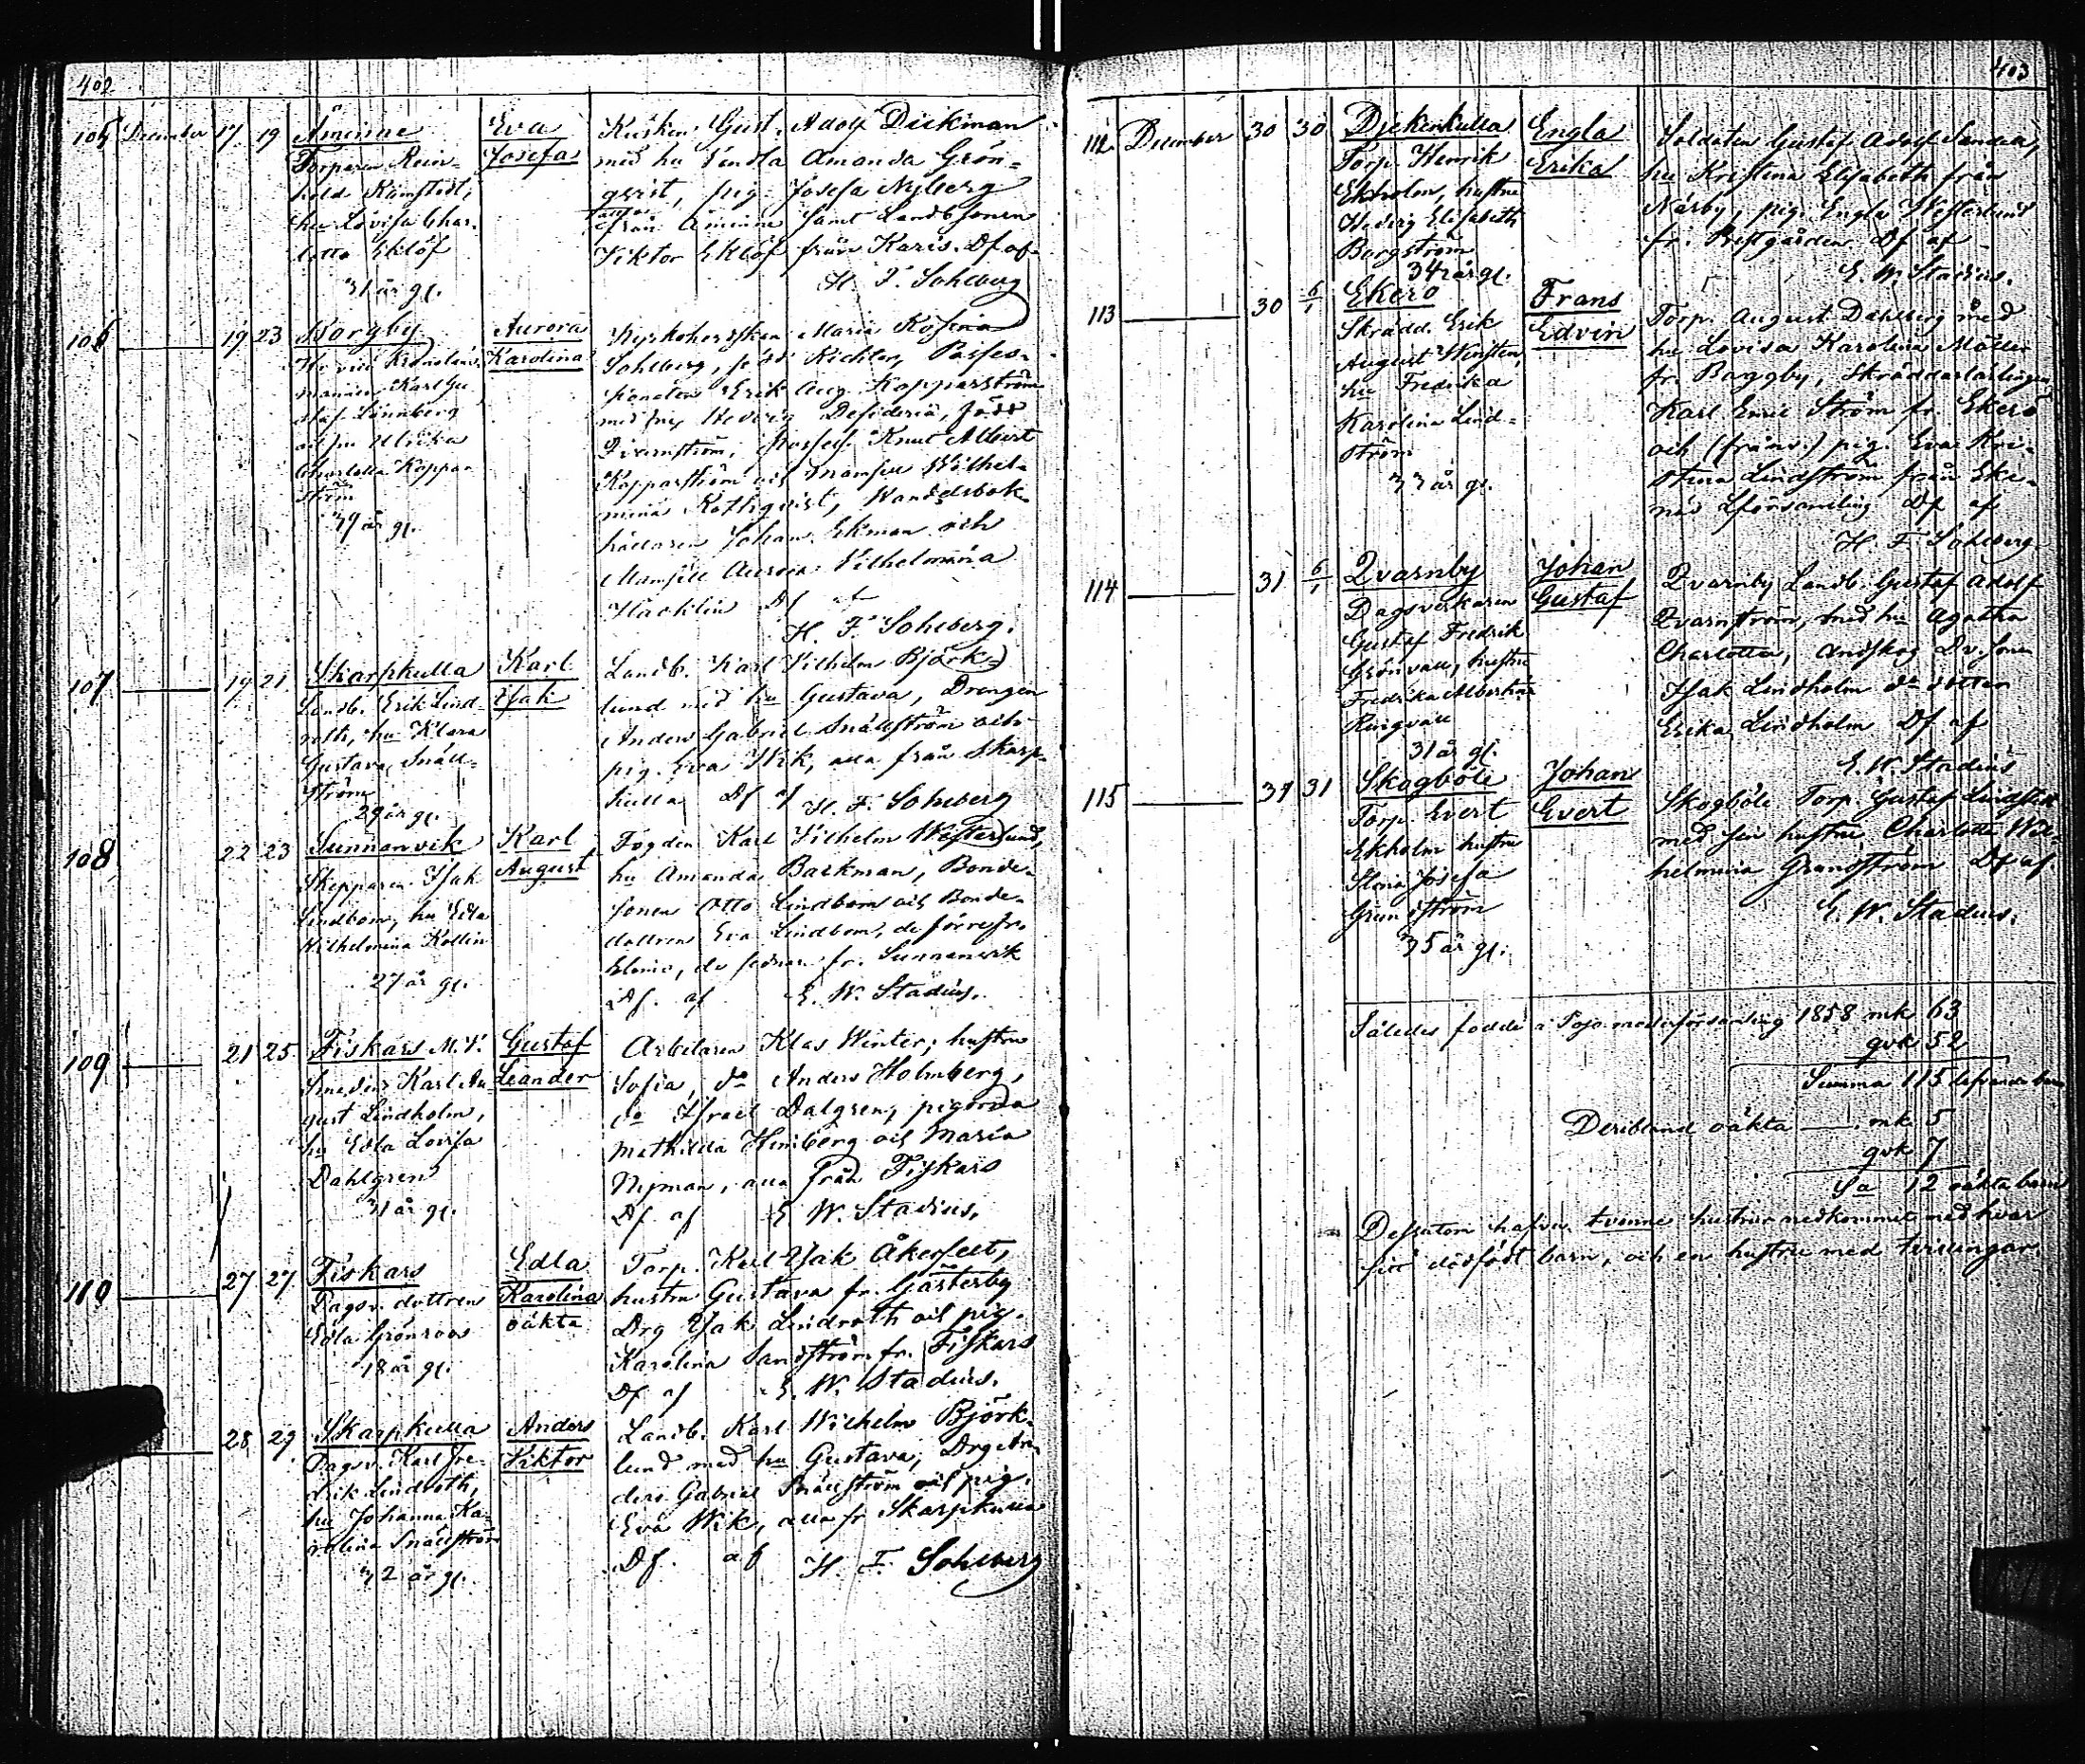 402
105 December 17 19 Åminne Eva Kusken Gust. Adolf Dickman
Torparen Rein- Josefa med hu Vendla Amanda Grön-
hold Rämstedt, qvist, pig. Josefa Nyberg
hu Lovisa Char- alla från Åminne samt Landb.sonen
lotta Eklöf Viktor Eklöf från Karis. Df af
31 år gl. H. F. Sohlberg
106 19 23 Borgby Aurora Kyrkoherdskan Maria Rosina
Karolina Sohlberg, född Richter, Posses-
mannen Karl Gu- sionaten Erik Aug. Kopparström
staf Linnberg med fru Hedvig Desideria, född
och fru Ulrika Qvarnström, Possess. Knut Albert
Charlotta Koppar- Kopparström och mamsell Wilhel-
ström mina Rothqvist, Handelsbok-
39 år gl. hållaren Johan Ekman och
Mamsell Aurora Vilhelmina
Df af
H. F. Sohlberg.
107 19 21 Skarpkulla Karl Landb. Karl Vilhelm Björk-
Landb. Erik Lind- Isak lund med hu Gustava, Drengen
roth, hu Klara Anders Gabriel Snällström och
Gustava Snäll- pig. Eva Wik, alla från Skarp-
ström kulla Df af H. F. Sohlberg
29 år gl.
108 22 23 Sunnanvik Karl Fogden Karl Vilhelm Westerlund,
Skepparen Isak August hu Amanda Barkman, Bonde-
Lindbom, hu Edla sonen Otto Lindbom och Bonde-
Wilhelmina Kollin dottren Eva Lindbom, de förre fr.
27 år gl. de sednare fr. Sunnanvik
Df. af E. W. Stadius.
109 21 25 Fiskars M. V. Gustaf Arbetaren Klas Winter, hustru
Smeden Karl Au- Leander Sofia, do Anders Holmberg,
gust Lindholm, do Israel Dalgren, pigorna
hu Edla Lovisa Mathilda Himberg och Maria
Dahlgren Nyman, alla från Fiskars
31 år gl. Df. af E. W. Stadius.
110 27 27 Fiskars Edla Torp. Karl Isak Åkerfelt,
Dagsv. dottren Karolina hustru Gustava fr. Gästerby
Edla Grönroos oäkta Drg Isak Lindroth och pig.
18 år gl. Karolina Sandström fr. Fiskars
Df af E. W. Stadius.
28 29 Skarpkulla Anders Landb. Karl Wilhelm Björk-
Dagsv. Karl Fre- Viktor lund med hu Gustava, Drg An-
drik Lindroth, ders Gabriel Snällström och pig.
hu Johanna Ka- Eva Wik, alla fr Skarpkulla
rolina Snällström Df. af H. F. Sohlberg
32 år gl.
403
112 December 30 30 Djekenkulla Engla Soldaten Gustaf Adolf Sandell,
Torp. Henrik Erika hu Kristina Elisabeth från
Ekholm, hustru Närby, pig. Engla Westerlund
Hedvig Elisabeth fr. Prestgården Df af
Borgström E. W. Stadius.
34 år gl.
113 30 6/1 Ekerö Frans Torp. August Dahlberg med
Skrädd. Erik Edvin hu Lovisa Karolina Möller
August Winsten, fr. Baggby, Skräddarlärlingen
hu Fredrika Karl Emil Ström fr. Ekerö
Karolina Lind- och (frånv.) pig. Eva Kri-
ström stina Lindström från Eke-
33 år gl. näs Lförsamling Df af
H. F. Sohlberg
114 31 6/1 Qvarnby Johan Qvarnby Landb. Gustaf Adolf
Dagsverkaren Gustaf Qvarnström, med hu Agatha
Gustaf Fredrik Charlotta, Dv. sonen
Grönvall, hustru Isak Lindholm do dotter
Fredrika Albertina Erika Lindholm Df af
Ringvall E. W. Stadius
31 år gl.
115 31 31 Skogböle Johan Skogböle Torp. Gustaf Lindstén
Torp. Evert Evert med sin hustru Charlotta Wil-
Ekholm hustru helmina Grandström Df af.
Josefa E. W. Stadius.
35 år gl.
Således födde i Pojo moderförsamling 1858 mk 63
qvk 52
Summa 115 lefvande barn
Deribland oäkta mk 5
qvk 7
Sa 12 oäkta barn
Dessutom hafva tvenne hustrur nedkommit med hvar
sitt dödfödt barn, och en hustru med tvillingar.